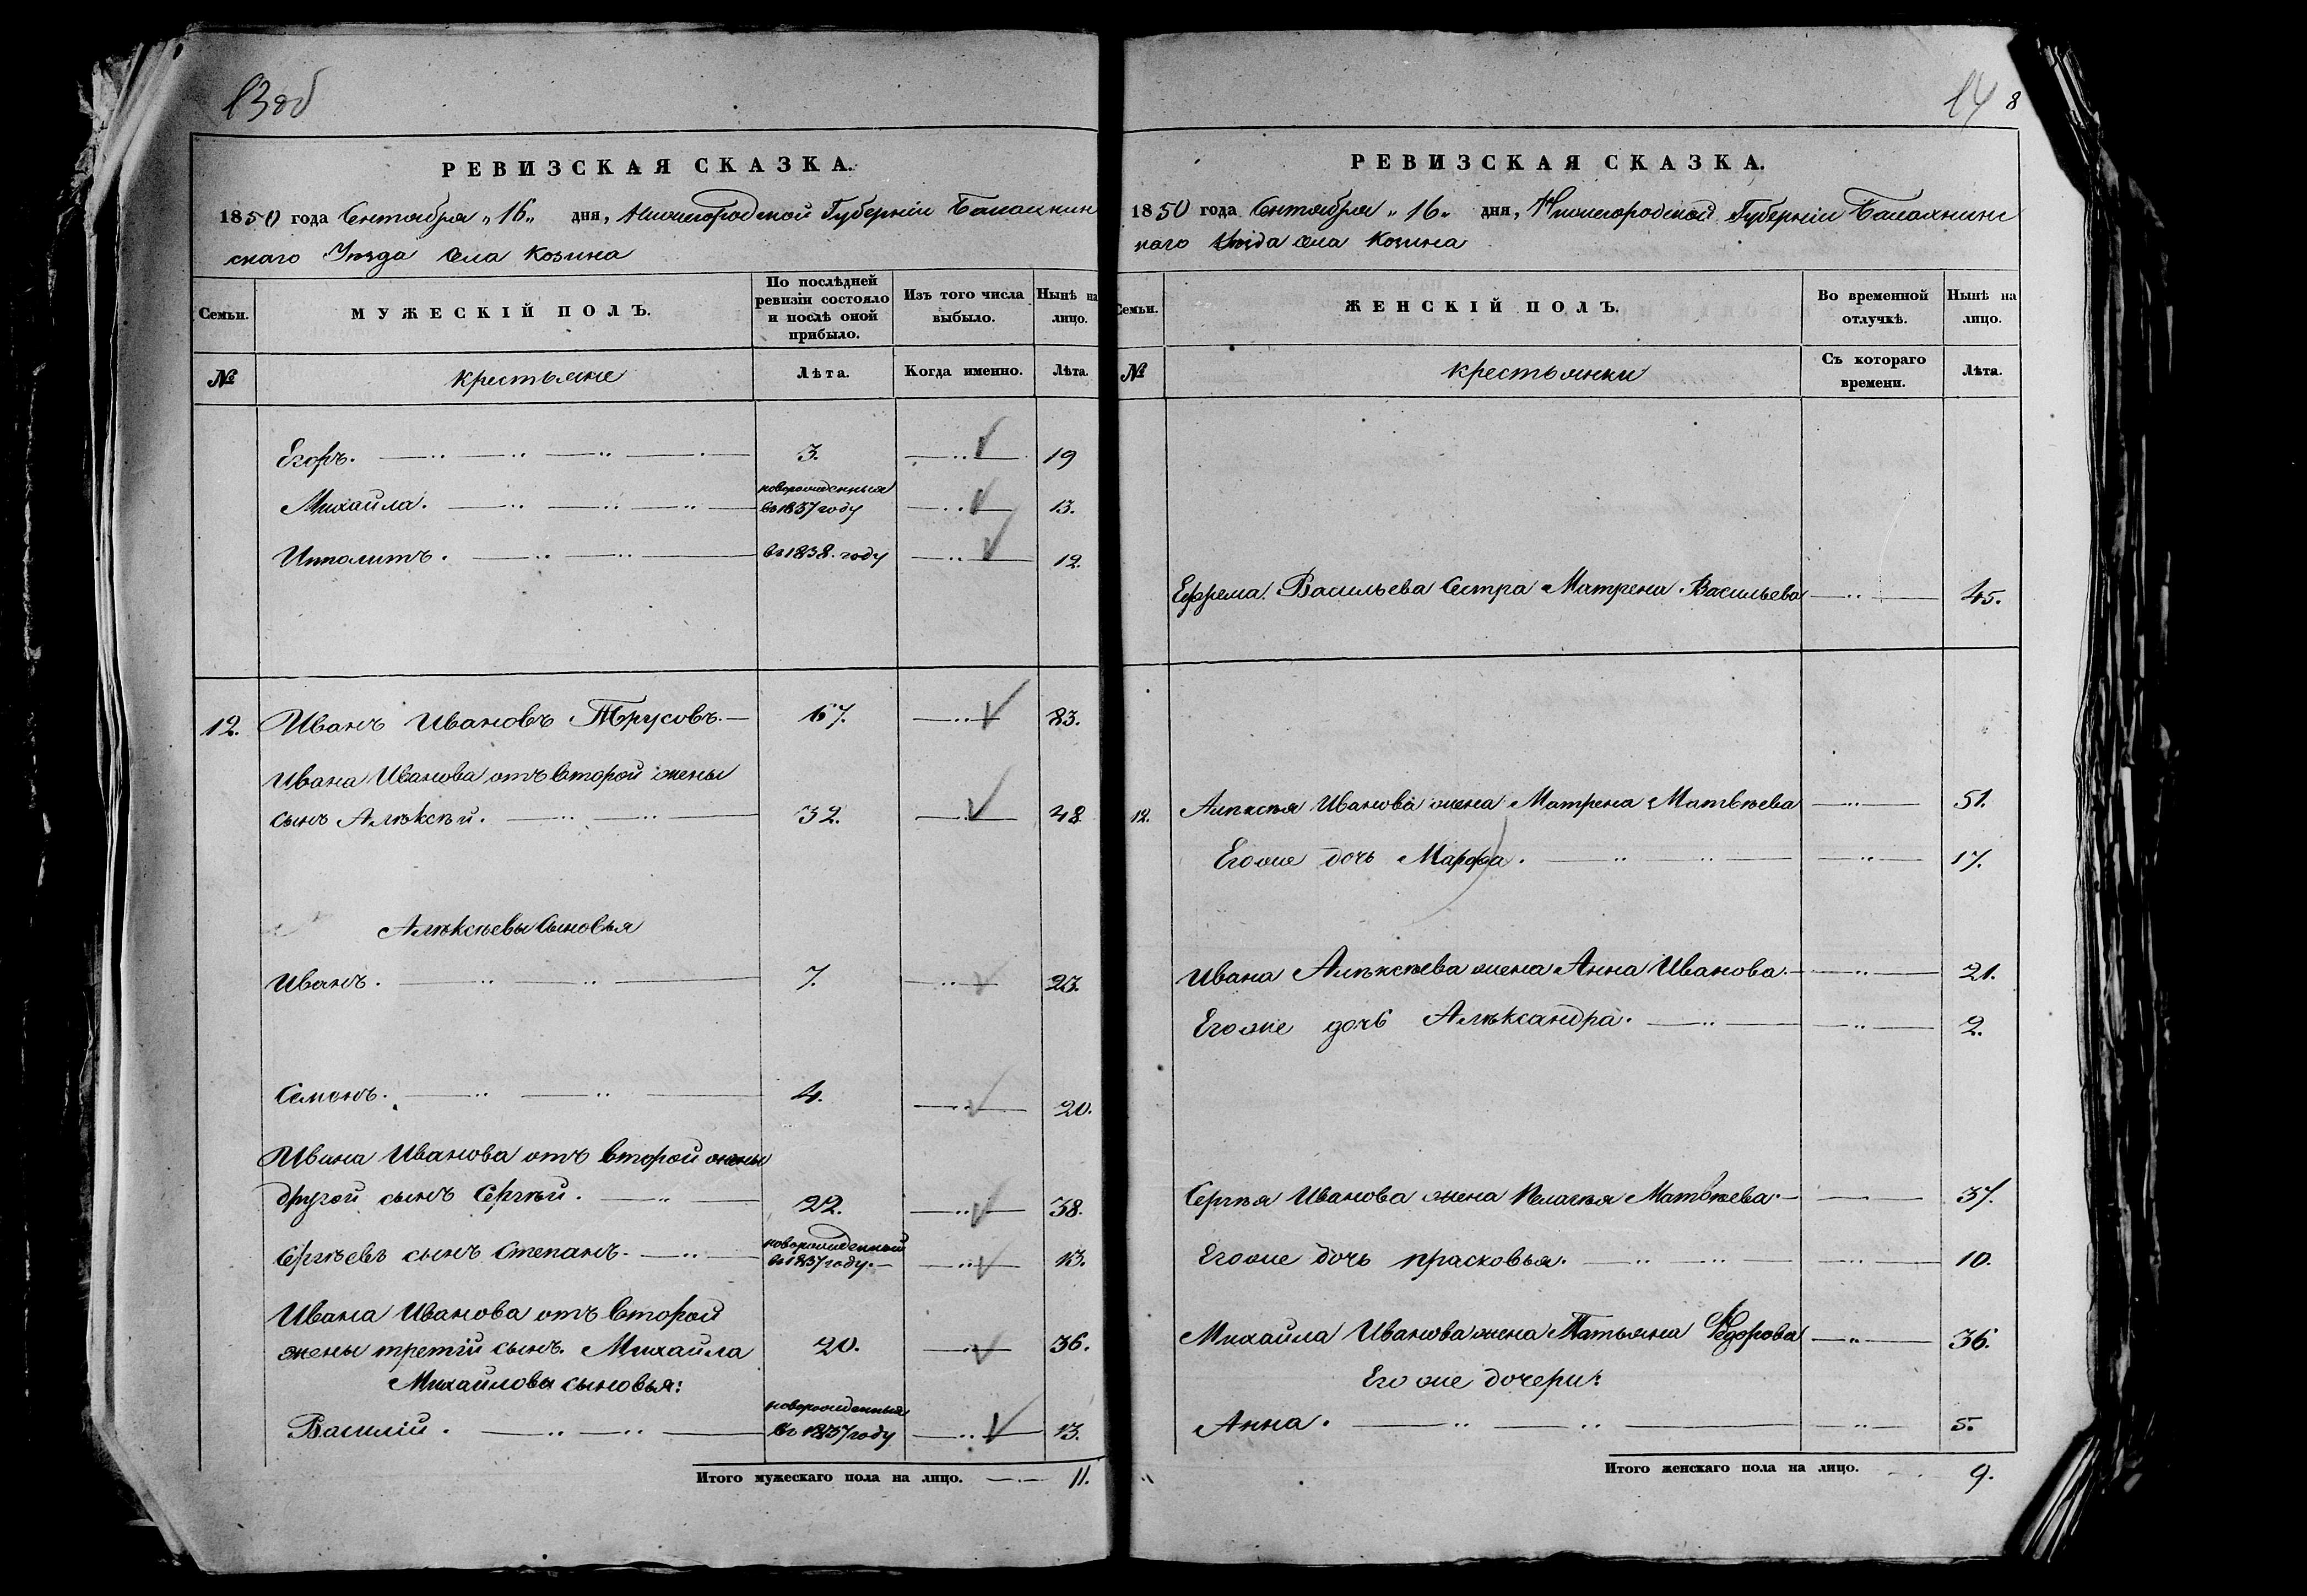 13об
РЕВИЗСКАЯ СКАЗКА.
1850 года Сентября „16„ дня, Нижегородской Губерніи Балахнин
скаго Уѣзда Села Козина
Семьи.
МУЖЕСКІЙ ПОЛЪ.
По послѣдней
ревизіи состояло
и послѣ оной
прибыло.
Изъ того числа
выбыло.
Нынѣ на
лицо.
№
крестьяне
Лѣта.
Когда именно.
Лѣта.
Егоръ. 3. 19
Михайла. новорожденныя
въ 1837 году 13.
Ипполитъ. въ 1838. году 12.
12. Иванъ Ивановъ Трусовъ. 67. 83.
Ивана Иванова отъ второй жены
сынъ Алѣксѣй. 32. 48
Алѣксѣевы Сыновья
Иванъ. 7. 23.
Семенъ. 4. 20.
Ивана Иванова отъ второй жены
другой сынъ Сергѣй. 22. 38.
Сергѣевъ сынъ Степанъ. новорожденный
въ 1837 году. 13.
Ивана Иванова отъ второй
жены третій сынъ. Михайла 20. 36.
Михайловы сыновья:
Василій. новорожденныя
въ 1837 году 13.
Итого мужескаго пола на лицо. 11.
14 8
РЕВИЗСКАЯ СКАЗКА.
1850 года Сентября „16„ дня, Нижегородской Губерніи Балахнинс
каго Уѣзда села Козина
Семьи.
ЖЕНСКІЙ ПОЛЪ.
Во временной
отлучкѣ.
Нынѣ на
лицо.
№
крестьянки
Съ котораго
времени.
Лѣта.
Ефрема Васильева Сестра Матрена Васильева 45.
12. Алѣксѣя Иванова жена Матрена Матвѣева 51.
Егоже дочь Марфа. 17.
Ивана Алѣксѣева жена Анна Иванова. 21.
Егоже дочь Алѣксандра. 2.
Сергѣя Иванова жена Пелагѣя Матвѣева. 37.
Егоже дочь прасковья. 10.
Михайла Иванова жена Татьяна Федорова 36.
Его же дочери:
Анна. 5.
Итого женскаго пола на лицо. 9.